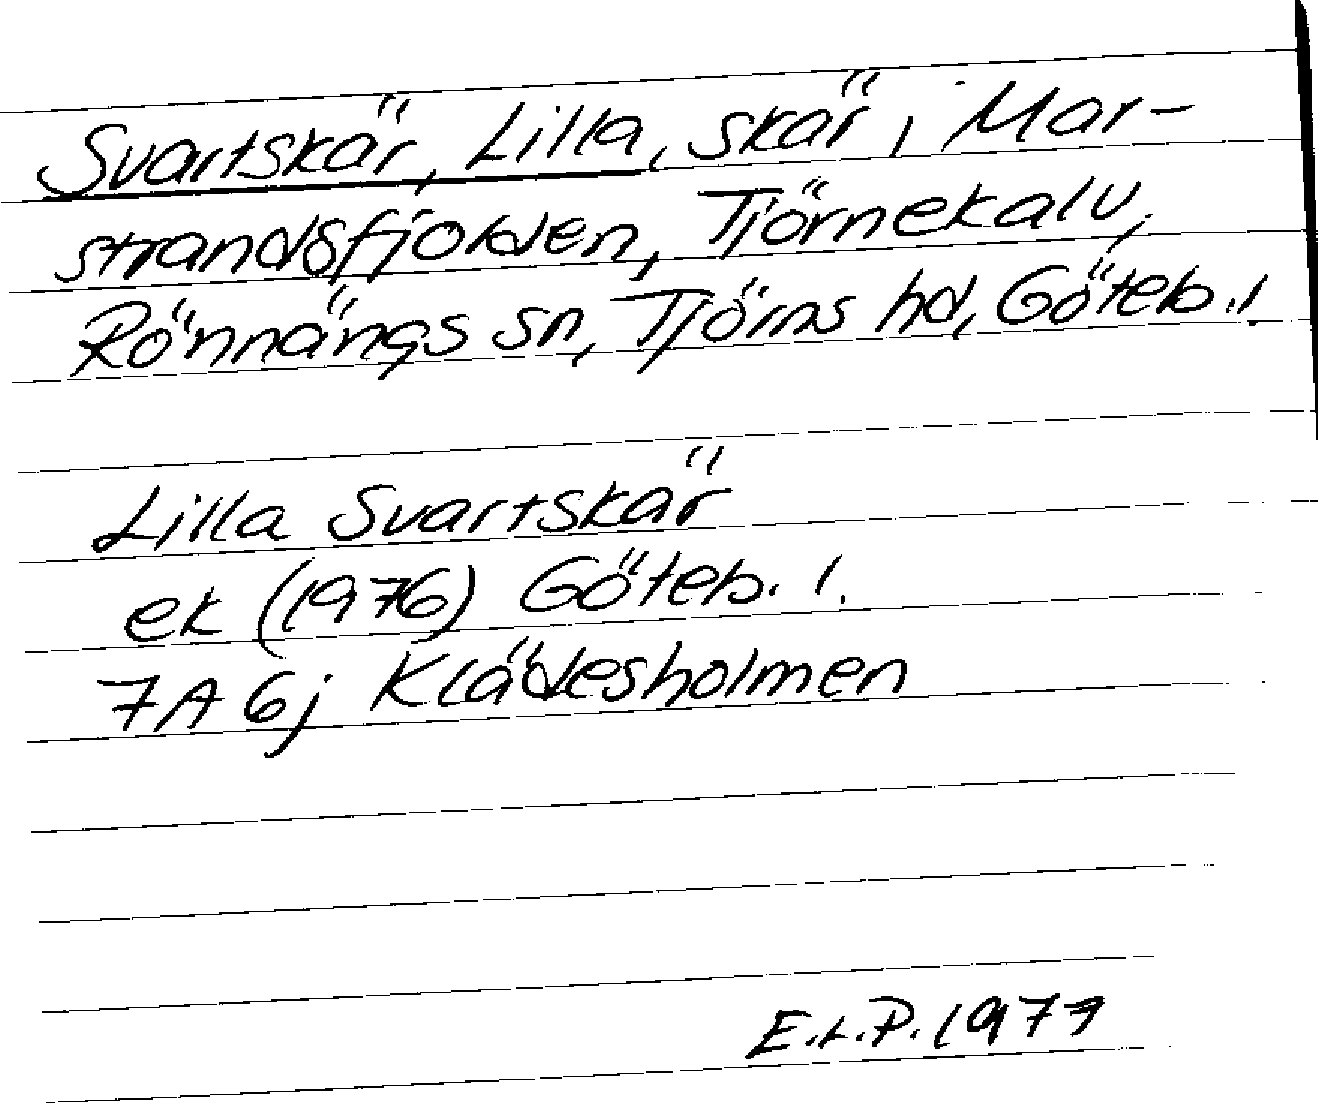 Svartskär, Lilla, skär, Mar-
strandsfjorden, Tjörnekalv,
Rönnängs sn, Tjörns hd, Göteb.l.
Lilla Svartskär
ek (1976) Göteb. l.
7A 6j Klädesholmen
E.L.P. 1977